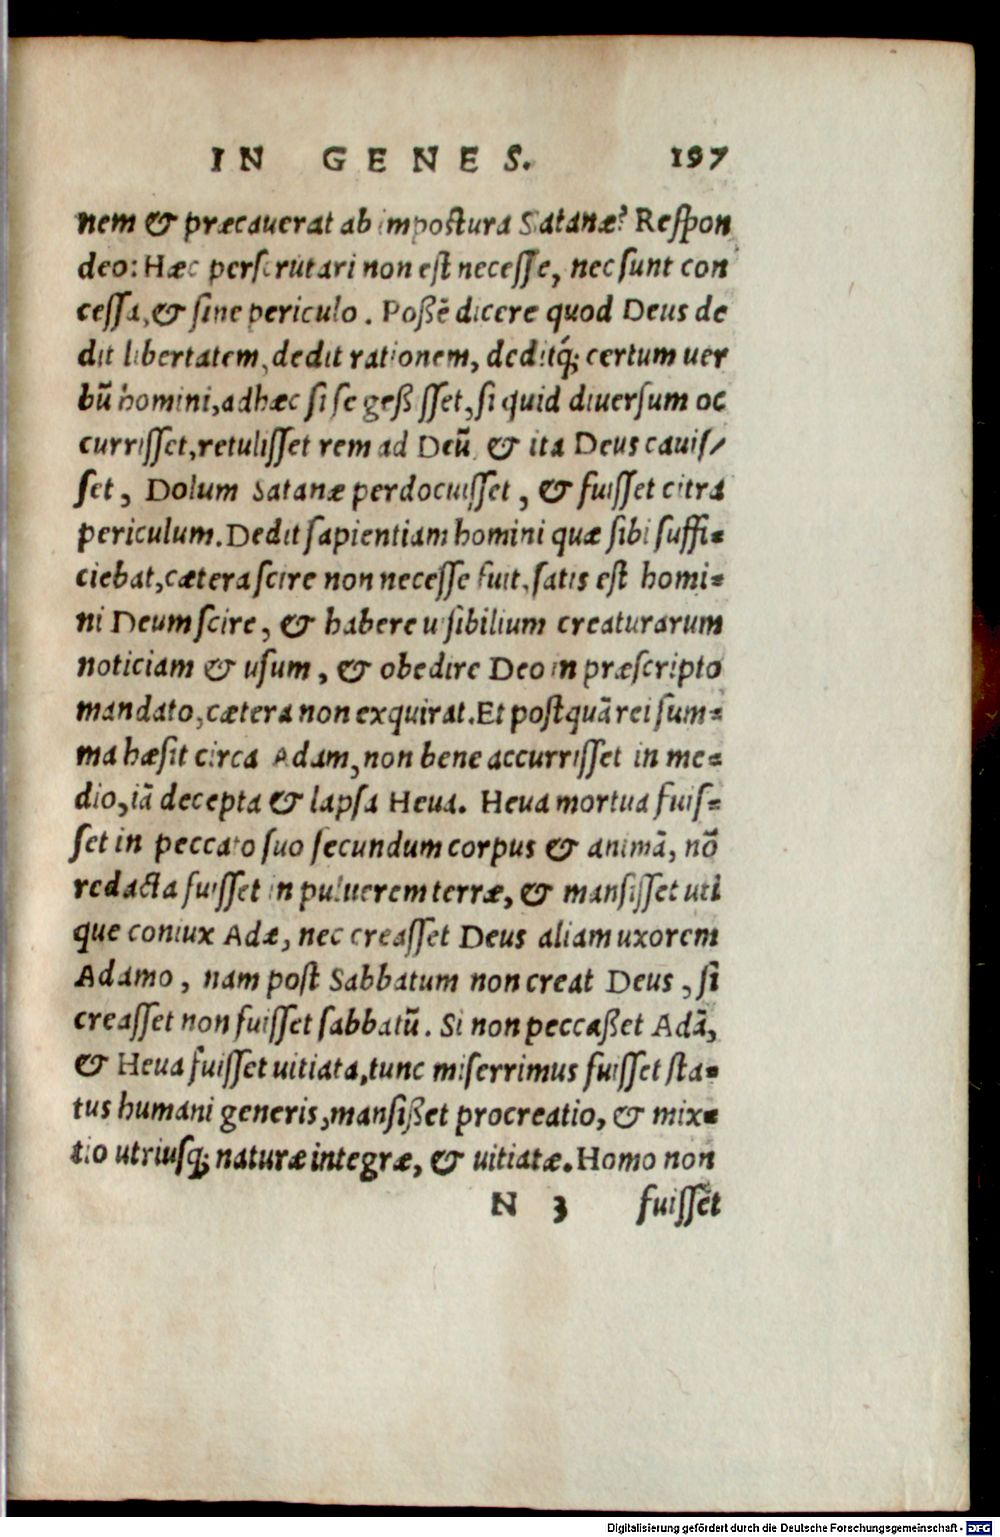 IN GENES. 197
nem & præcauerat ab impostura Satanæ? Respon
deo: Hæc perscrutari non est necesse, nec sunt con
cessa, & sine periculo. Possē dicere quod Deus de
dit libertatem, dedit rationem, deditq́; certum uer
bū homini, adhæc si se gessisset, si quid diuersum oc
currisset, retulisset rem ad Deū & ita Deus cauis/
set, Dolum Satanæ perdocuisset, & fuisset citra
periculum. Dedit sapientiam homini quæ sibi suffi-
ciebat, cætera scire non necesse fuit, satis est homi-
ni Deum scire, & habere uisibilium creaturarum
noticiam & usum, & obedire Deo in præscripto
mandato, cætera non exquirat. Et postquā rei sum-
ma hæsit circa Adam, non bene accurrisset in me-
dio, iā decepta & lapsa Heua. Heua mortua fuis-
set in peccato suo secundum corpus & animā, nō
redacta fuisset in puluerem terræ, & mansisset uti
que coniux Adæ, nec creasset Deus aliam uxorem
Adamo, nam post Sabbatum non creat Deus, si
creasset non fuisset sabbatū. Si non peccaßet Adā,
& Heua fuisset uitiata, tunc miserrimus fuisset sta-
tus humani generis, mansißet procreatio, & mix-
tio utriusq; naturæ integræ, & uitiatæ. Homo non
N 3 fuisset
Digitalisierung gefördert durch die Deutsche Forschungsgemeinschaft - DFG